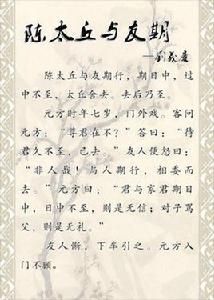 陈太丘与友期
——刘义庆
陈太丘与友期行，期日中，过
中不至，太丘舍去，去后乃至。
元方时年七岁，门外戏。客问
元方：“尊君在不？”答曰：“待
君久不至，已去。”友人便怒曰：
“非人哉！与人期行，相委而
去。”元方曰：“君与家君期日
中，日中不至，则是无信；对子骂
父，则是无礼。”
友人惭，下车引之。元方入
门不顾。